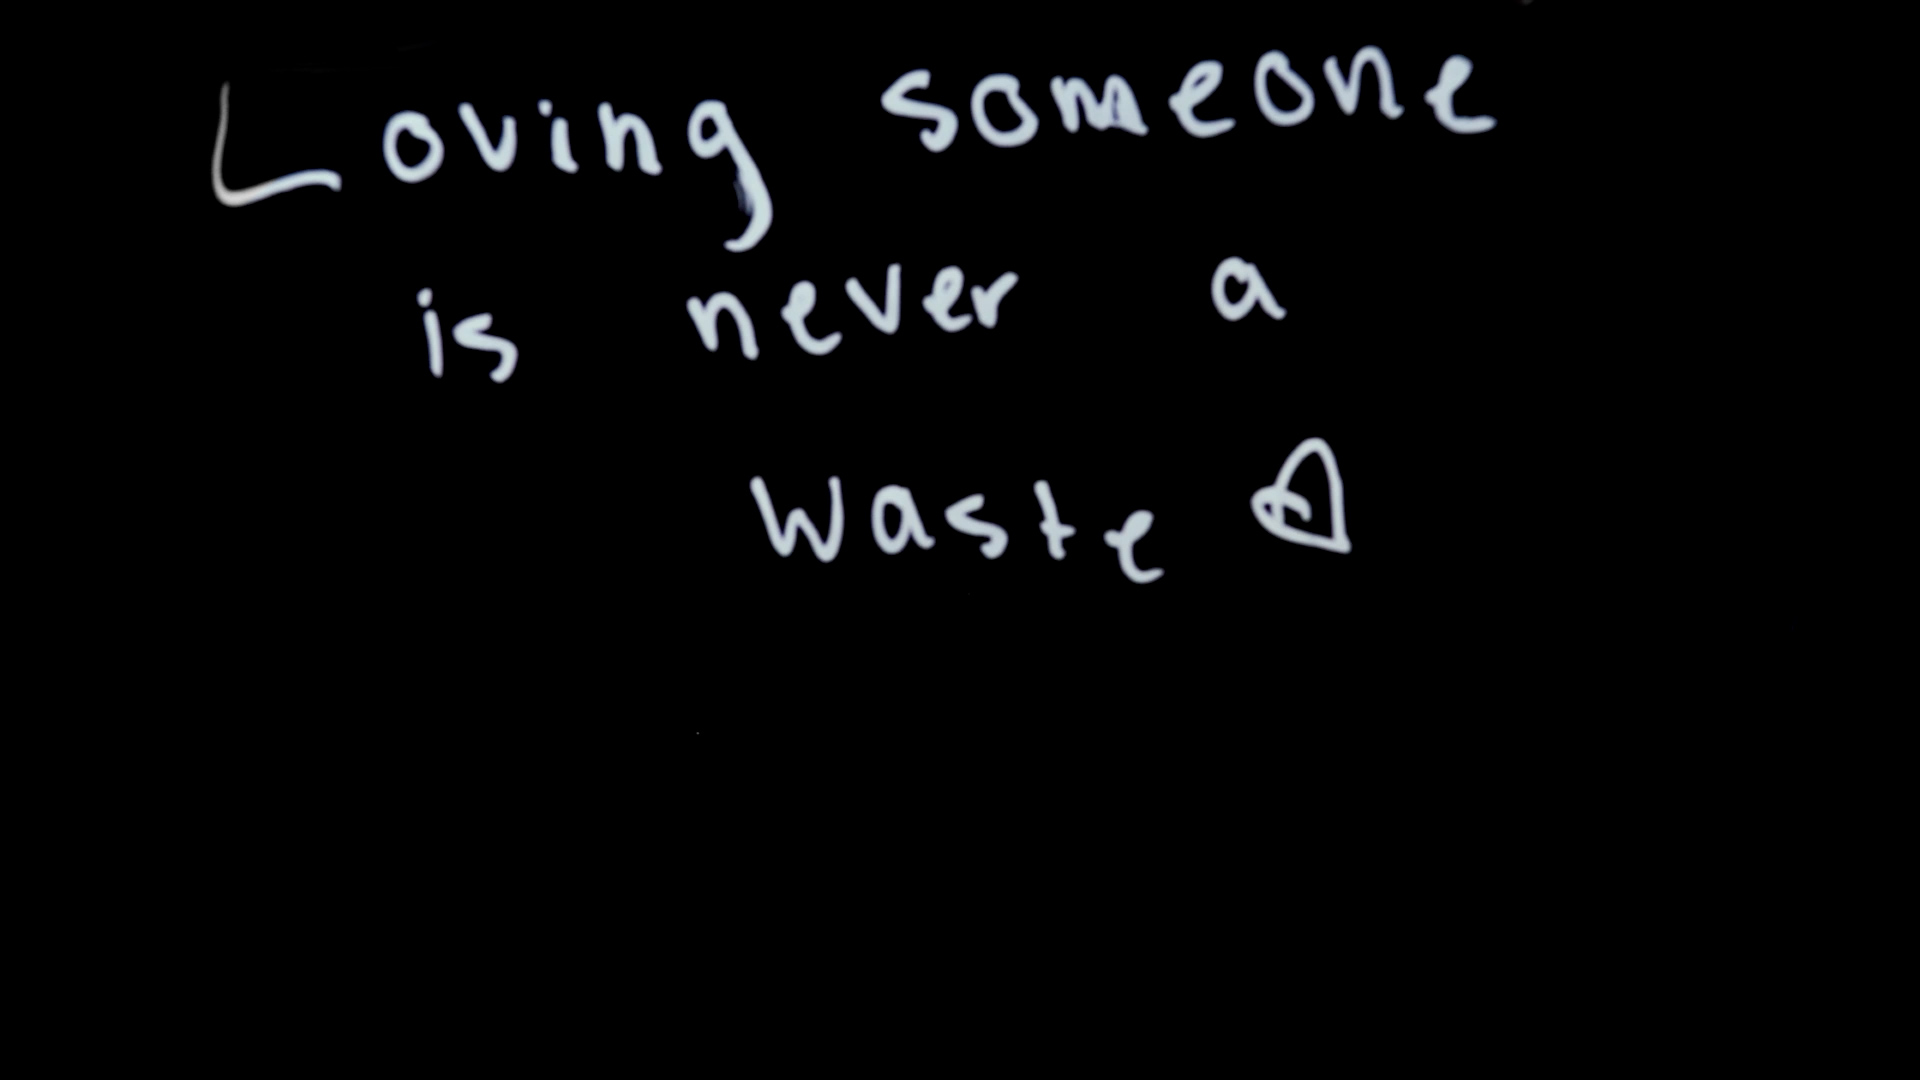 Loving someone
is never a
waste